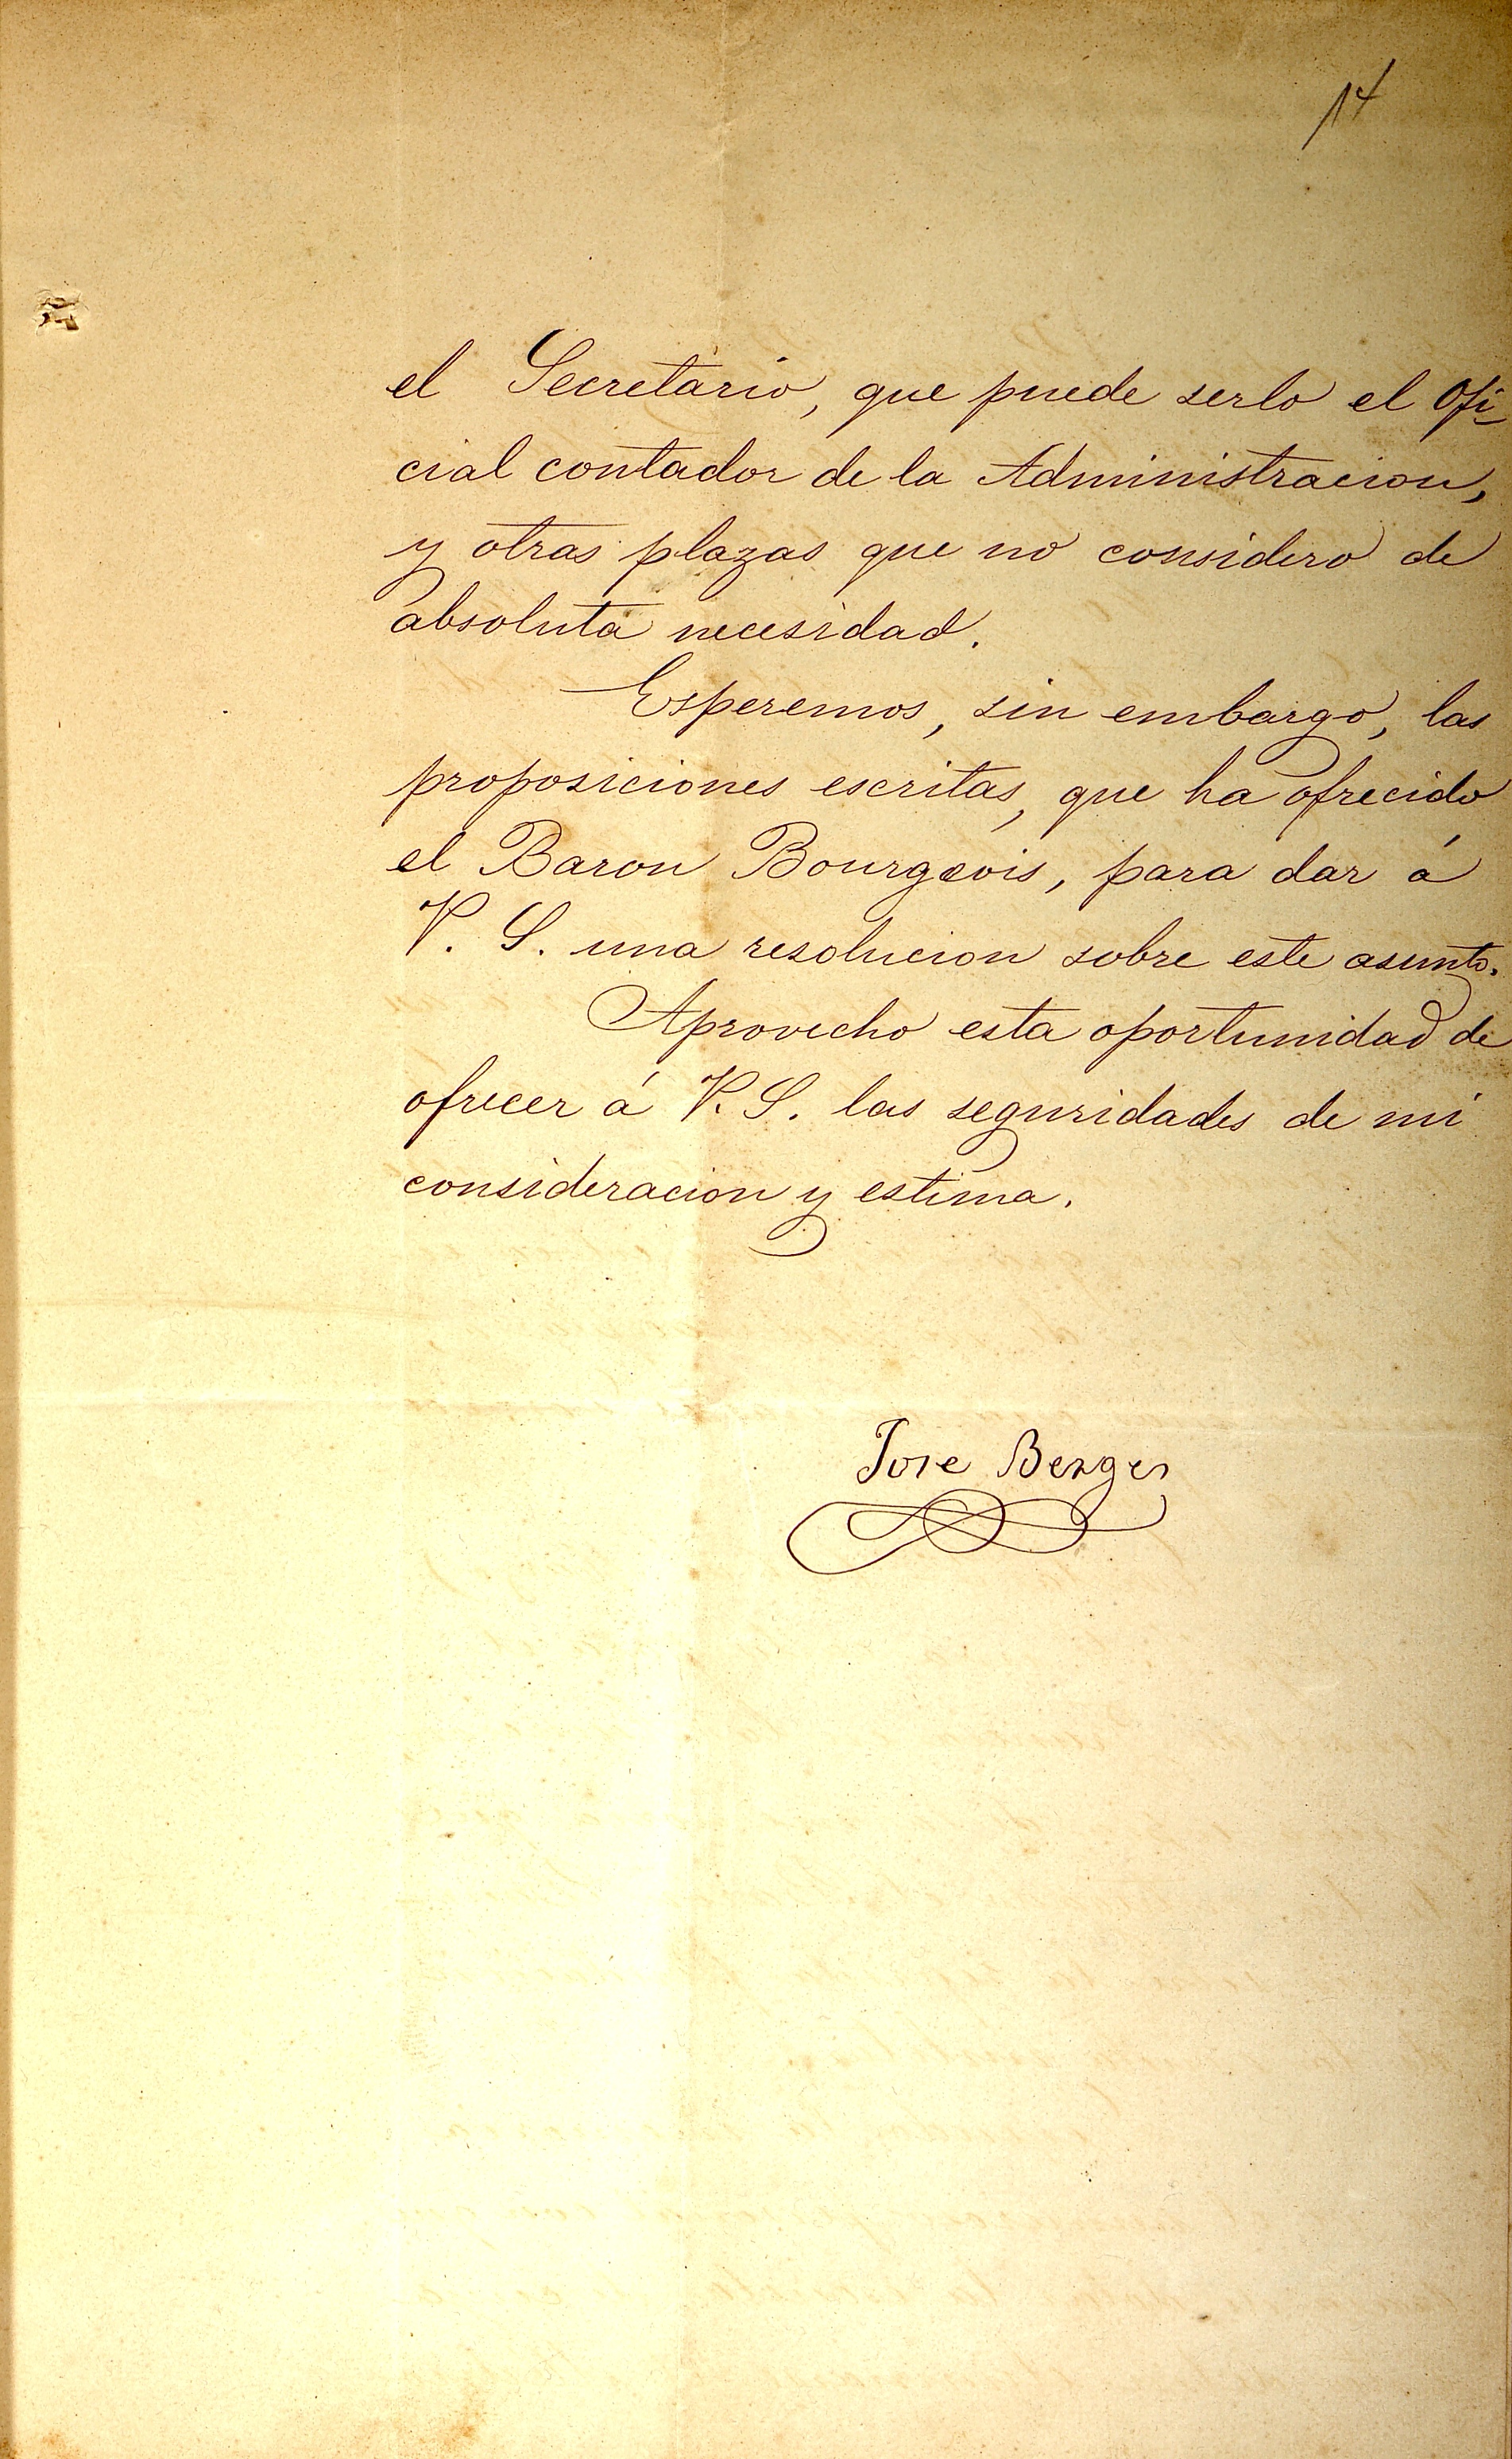 14
el Secretario, que puede serlo el Ofi-
cial contador de la Administracion,
y otras plazas que no considero de
absoluta necesidad.
Esperemos, sin embargo, las
proposiciones escritas, que ha ofrecido
el Baron Bourgeois, para dar á
V. S. una resolucion sobre este asunto.
Aprovecho esta oportunidad de
ofrecer á V. S. las seguridades de mi
consideracion y estima.
Jose Berges